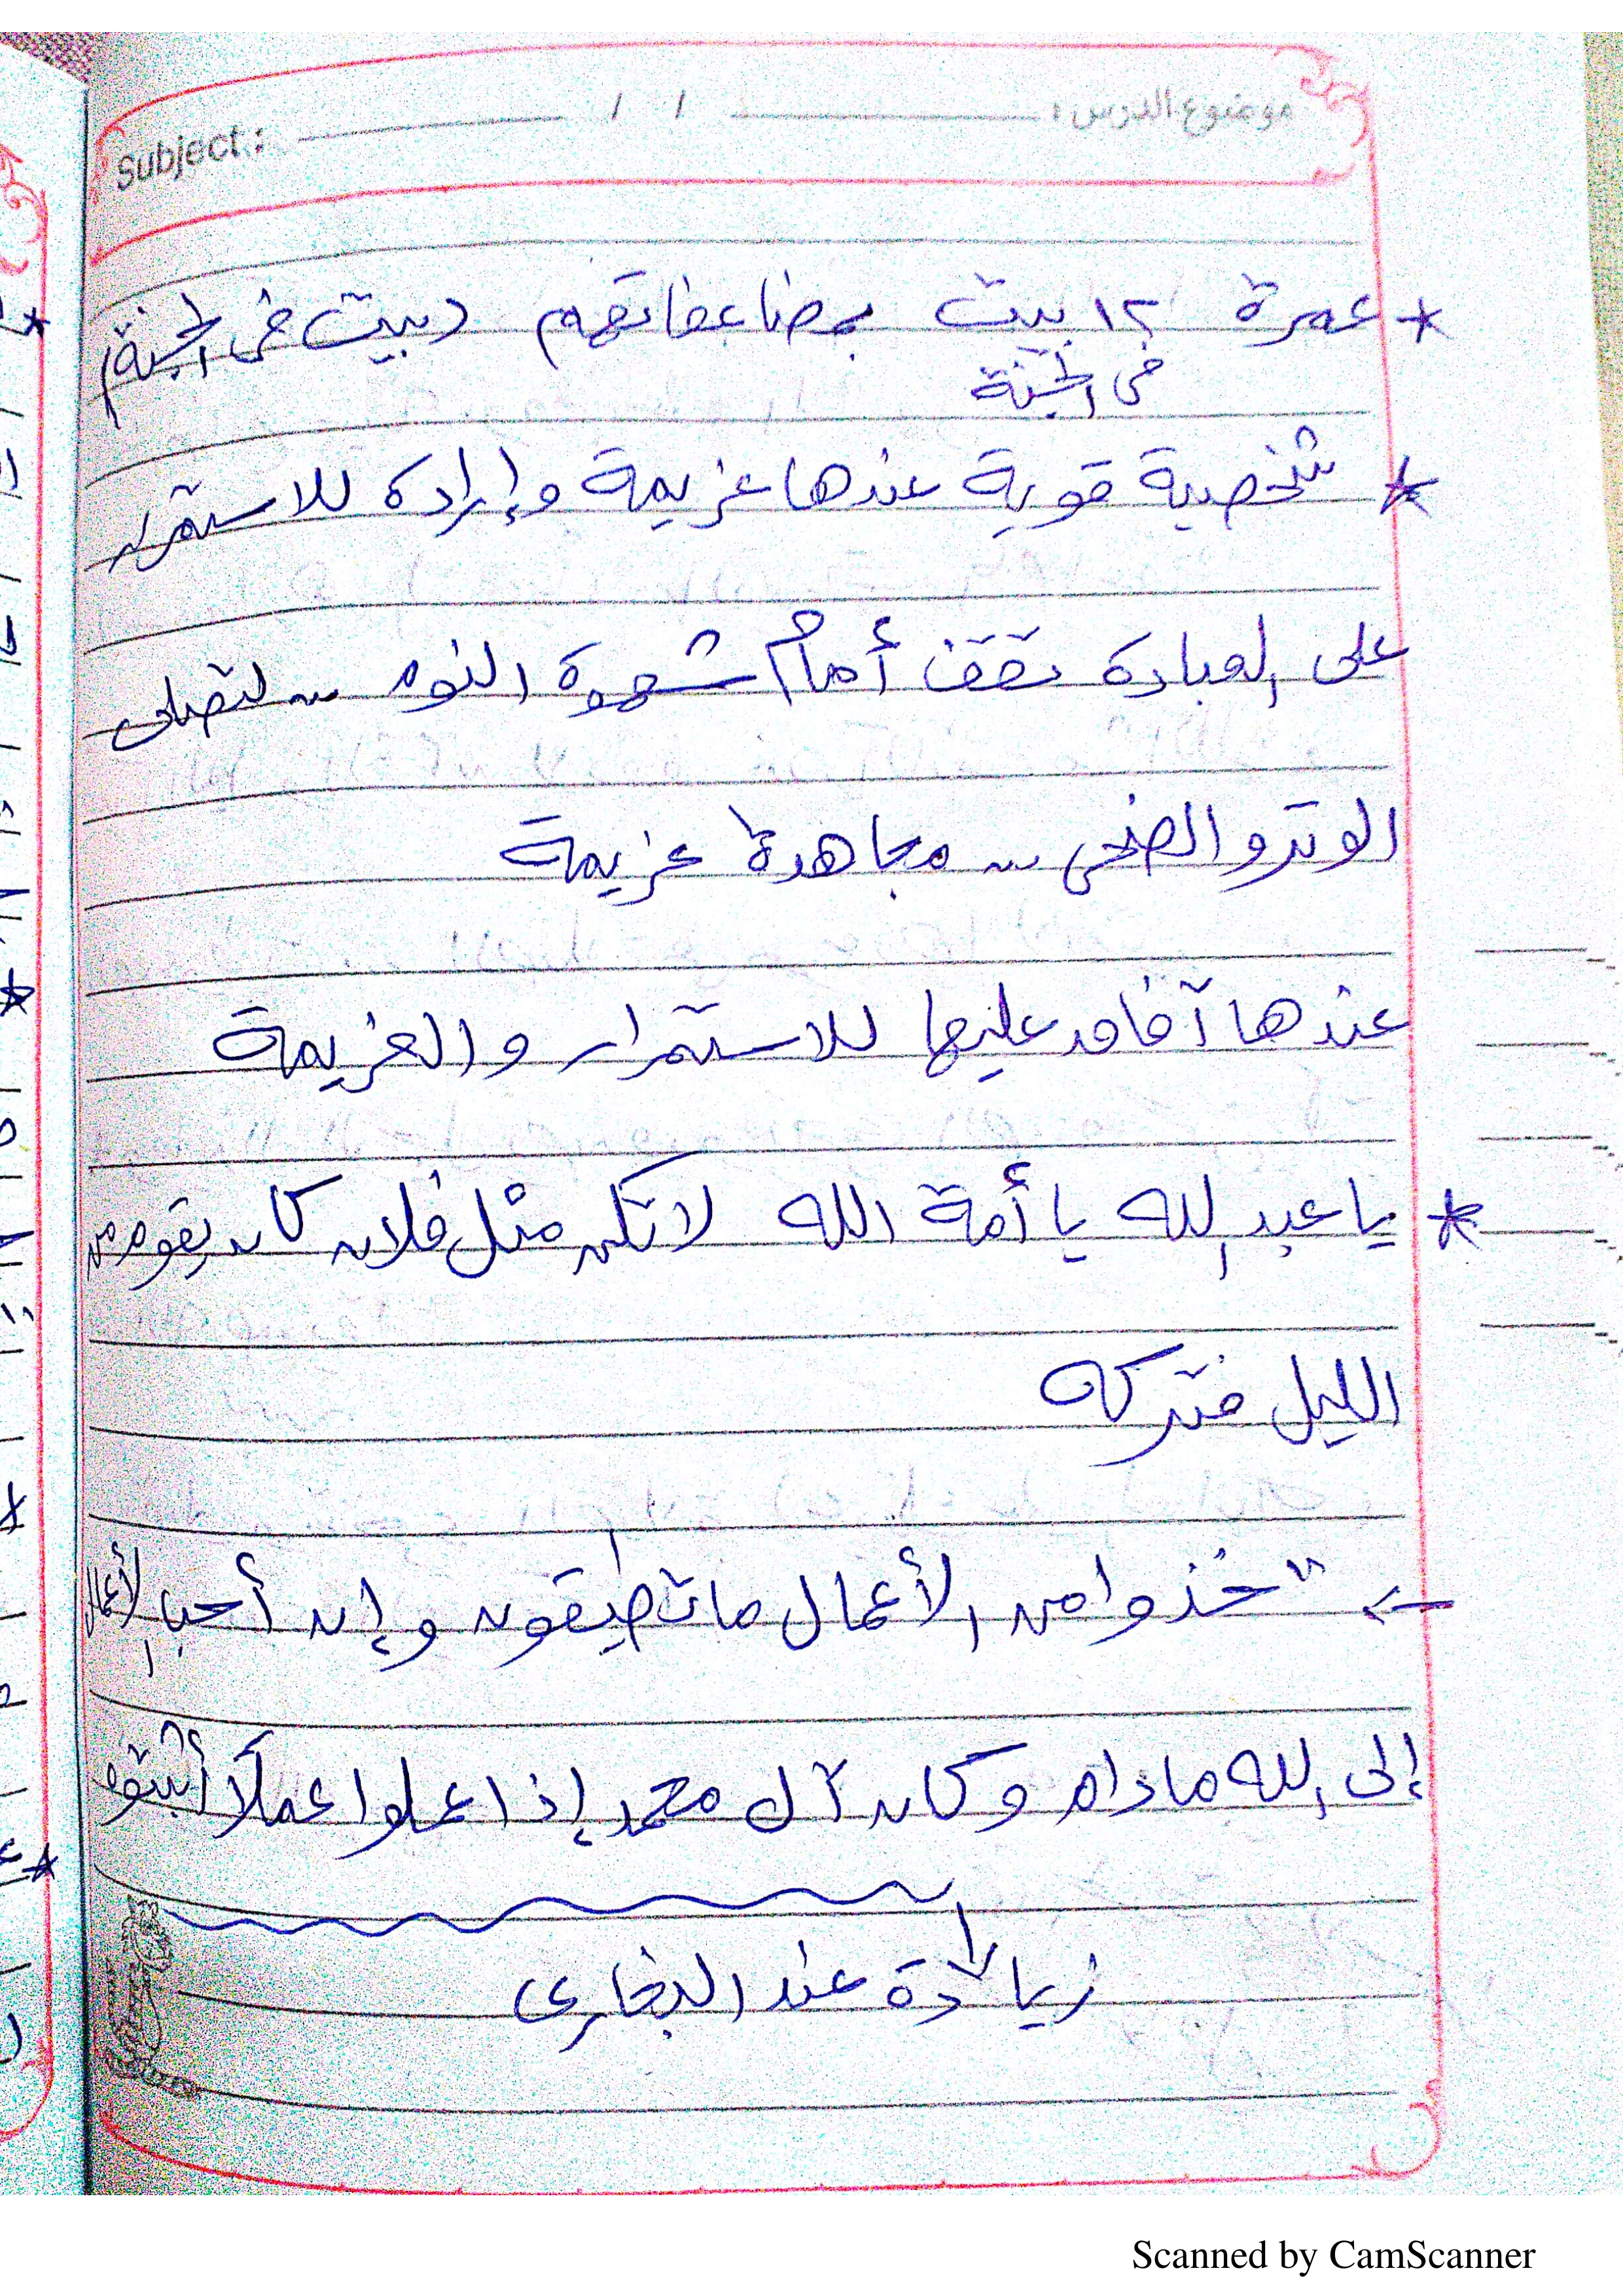 موضوع الدرس: / / Subject:
* عمرة ١٢ بيت بمضاعفاتهم (بيت في الجنة)
في الجنة
* شخصية قوية عندها عزيمة وإرادة للاستمرار
على العبادة تقف أمام شهوة النوم ... لتصلى
الوتر والضحى ... مجاهدة عزيمة
عندها آفاق عليها للاستمرار والعزيمة
* يا عبد الله يا أمة الله لا تكن مثل فلان كان يقوم من
الليل فتركه
← "خذوا من الأعمال ما تطيقون وإن أحب الأعمال
إلى الله ما دام وكان آل محمد إذا عملوا عملاً أثبتوه
زيادة عند البخارى
Scanned by CamScanner